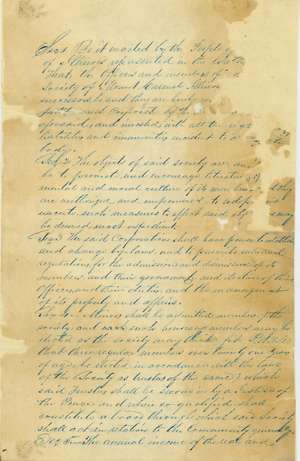 Sec 1 Be it enacted by the People
of Illinois represented in the
That the Officers and members of
Society of Mount Carmel Illinois
successors be and they are
and corporate by the
and invested with all the
liabilities and immunities incident to a
body.
Sec 2 The object of said society are, and
be to promote and encourage literature
mental and moral culture of its members they
are authorized, and empowered to adopt and
execute, such measures to effect said object may
be deemed most expedient.
Sec 3 The said Corporation shall have power to establish
and change by laws, and to prescribe rules and
regulations for the admission and dismission of its
members and their government, and election of their
Officers, and their duties, and the management
of its property and affairs.
Sec 4 Minors shall be admitted members of the
society and such honorary members may be
elected as the society may think fit Provided
that three regular members over twenty one years
of age be elected in accordance with the laws
of the Society as trustees of the same which
said Trustees shall be sworn in by a Justice of
the Peace and when so qualified shall
constitute a board through which said Society
shall act in relations to the Community generally
Sec 5 The annual income of the real and